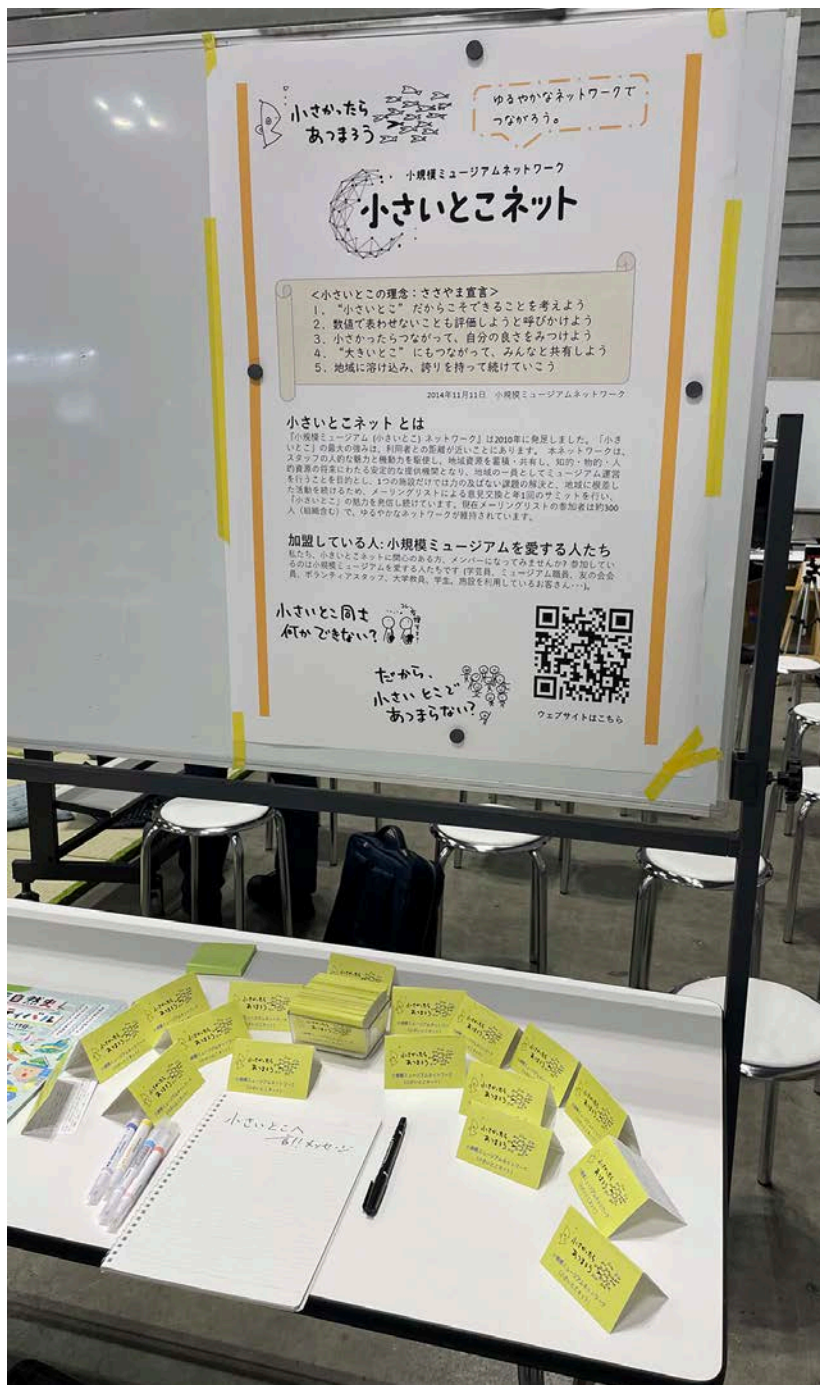 小さかったら
あつまろう
ゆるやかなネットワークで
つながろう。
小規模ミュージアムネットワーク
小さいとこネット
<小さいとこの理念：ささやま宣言>
1. “小さいとこ” だからこそできることを考えよう
2. 数値で表わせないことも評価しようと呼びかけよう
3. 小さかったらつながって、自分の良さをみつけよう
4. “大きいとこ” にもつながって、みんなと共有しよう
5. 地域に溶け込み、誇りを持って続けていこう
2014年11月11日 小規模ミュージアムネットワーク
小さいとこネット とは
『小規模ミュージアム (小さいとこ) ネットワーク』は2010年に発足しました。「小さ
いとこ」の最大の強みは、利用者との距離が近いことにあります。 本ネットワークは、
スタッフの人的な魅力と機動力を駆使し、地域資源を蓄積・共有し、知的・物的・人
的資源の将来にわたる安定的な提供機関となり、地域の一員としてミュージアム運営
を行うことを目的とし、1つの施設だけでは力の及ばない課題の解決と、地域に根差し
た活動を続けるため、メーリングリストによる意見交換と年1回のサミットを行い、
「小さいとこ」の魅力を発信し続けています。現在メーリングリストの参加者は約300
人（組織含む）で、ゆるやかなネットワークが維持されています。
加盟している人: 小規模ミュージアムを愛する人たち
私たち、小さいとこネットに関心のある方、メンバーになってみませんか? 参加してい
るのは小規模ミュージアムを愛する人たちです (学芸員、ミュージアム職員、友の会会
員、ボランティアスタッフ、大学教員、学生、施設を利用しているお客さん・・・)。
小さいとこ同士
何かできない?
だから、
小さいとこで
あつまらない?
ウェブサイトはこちら
小さかったら
あつまろう
小規模ミュージアムネットワーク
(小さいとこネット)
小さかったら
あつまろう
小規模ミュージアムネットワーク
(小さいとこネット)
小さいとこへ
一言!!メッセージ